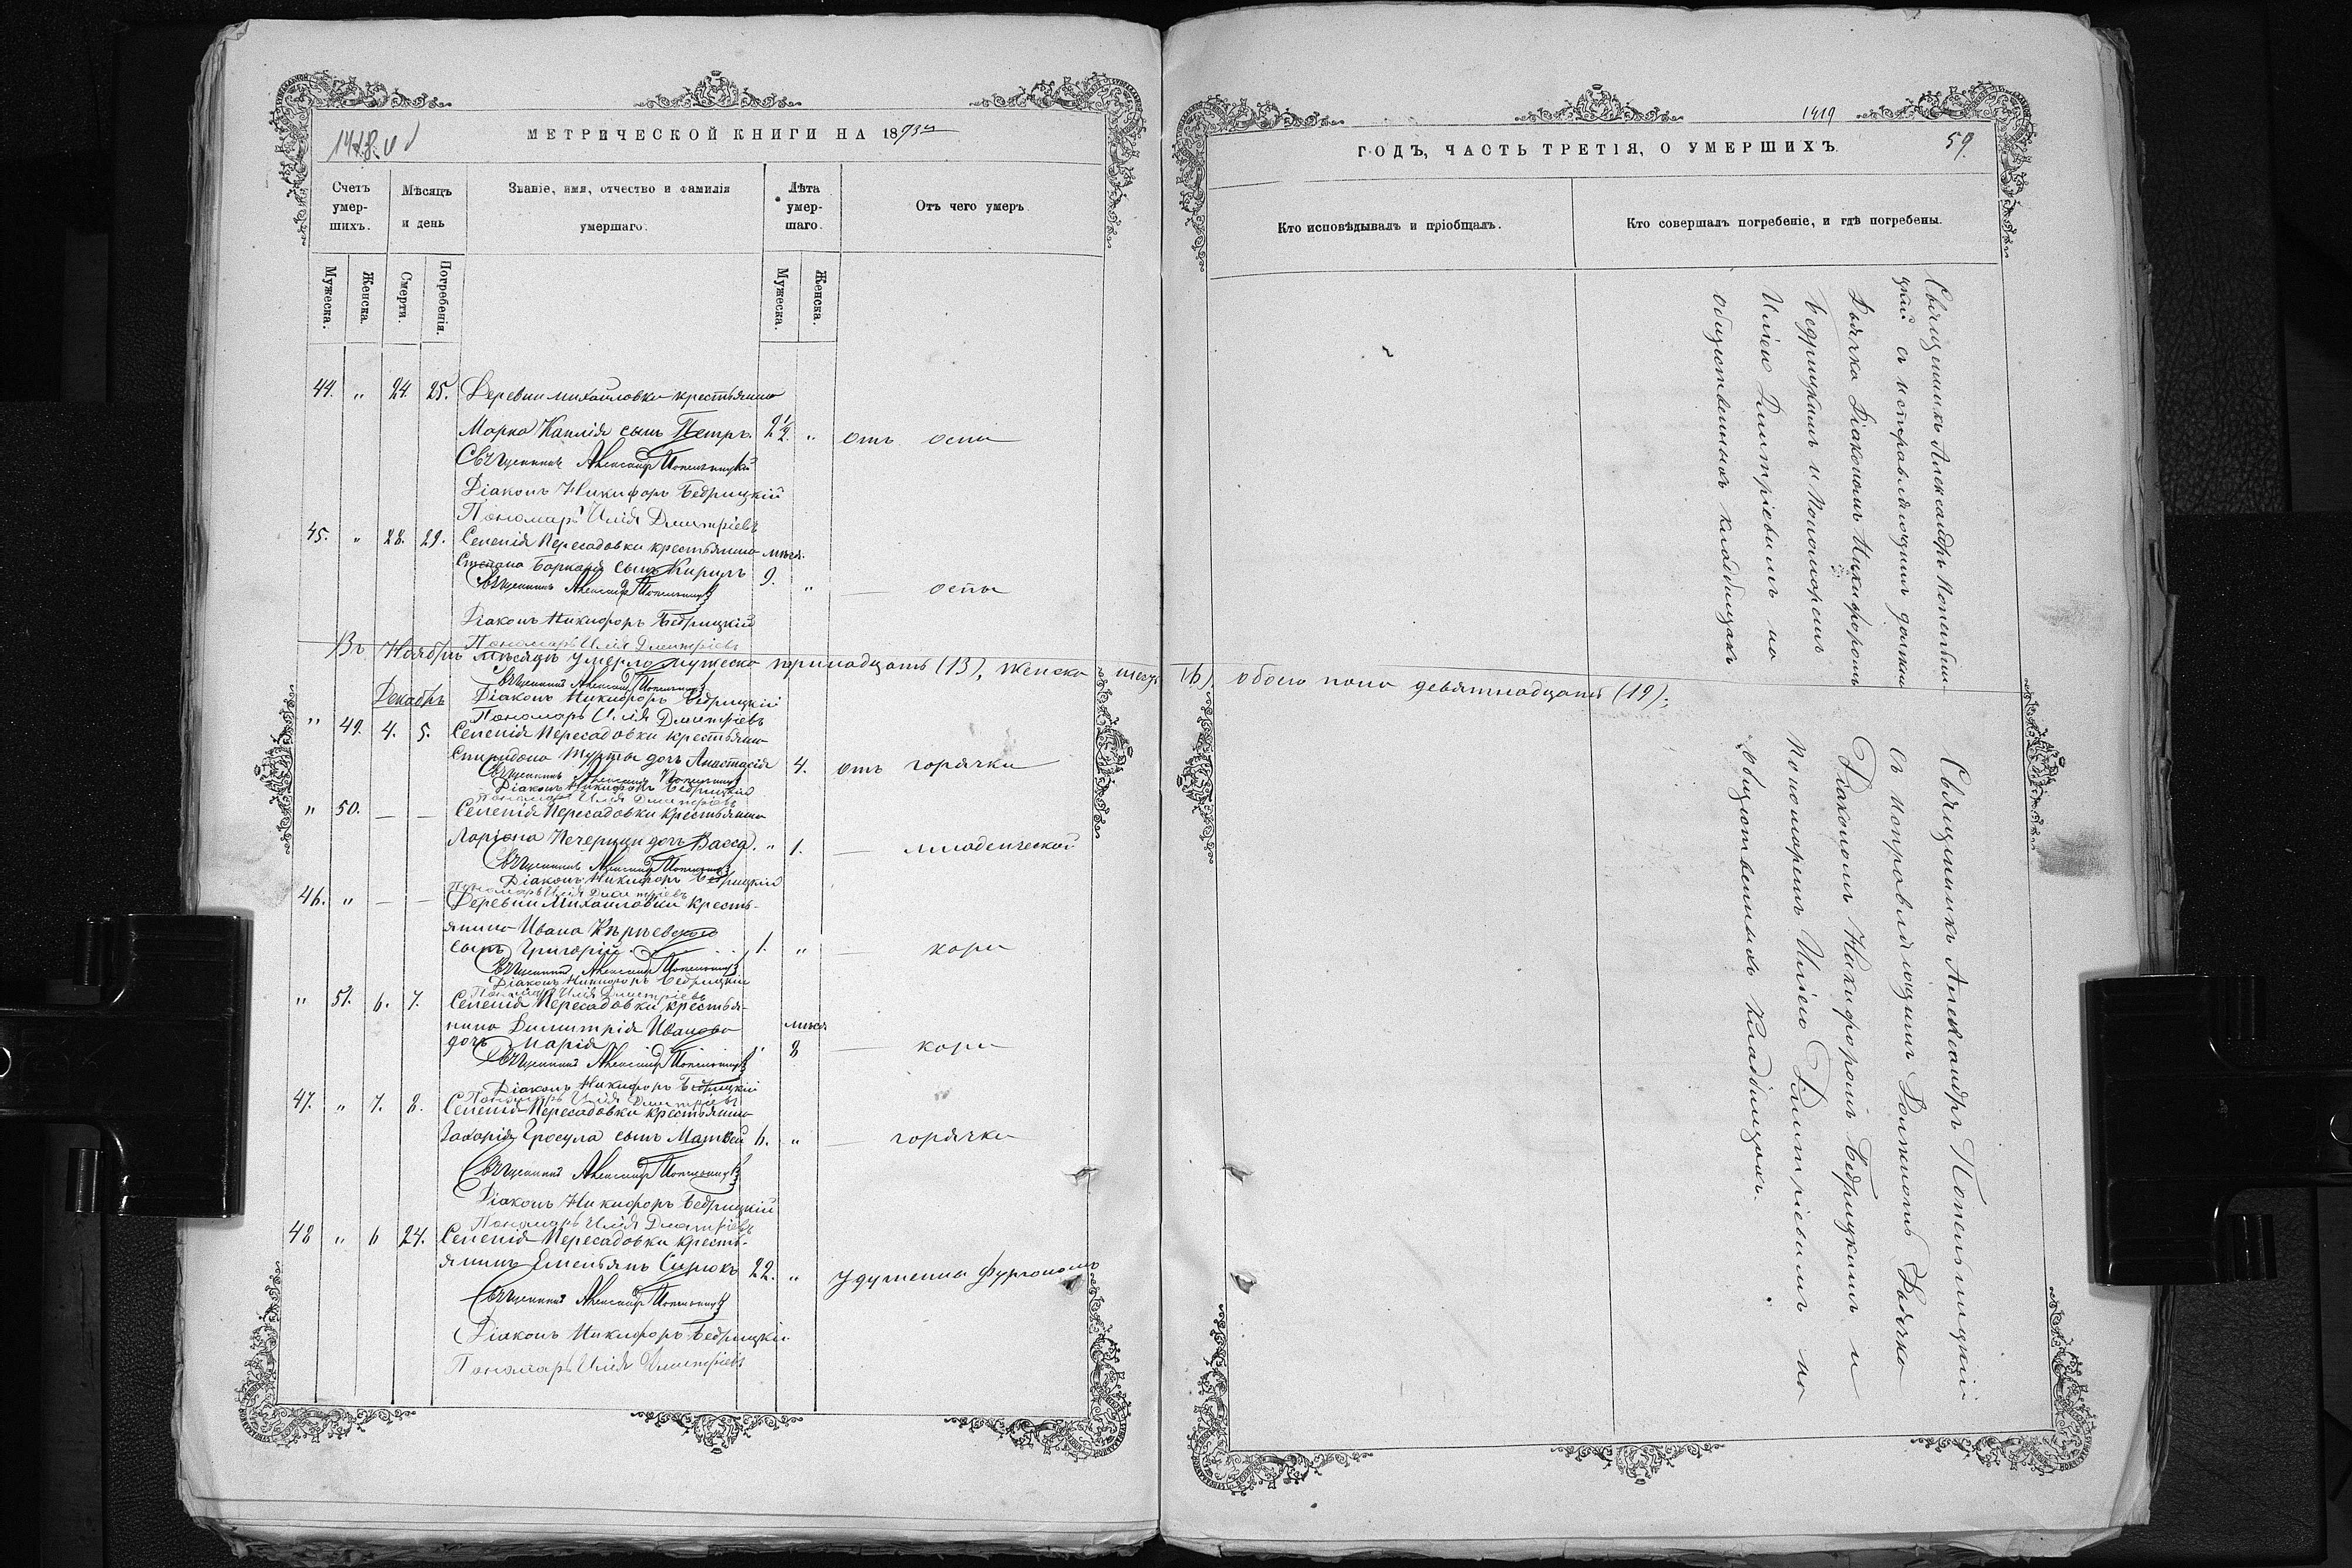 1418.
МЕТРИЧЕСКОЙ КНИГИ НА 1893й
Счетъ умер-шихъ.
Мѣсяцъ и день
Званіе, имя, отчество и фамилія умершаго.
Лѣта умер-шаго.
Отъ чего умеръ
Мужеска.
Женска.
Смерти.
Погребенія.
Мужеска.
Женска.
44. " 24. 25. Деревни Михайловки крестьянина
Марка Каплія сынъ Петръ. 2 1/2. " отъ оспы
Священникъ Александръ Попельницкій
Діаконъ Никифоръ Бедрицкій
Пономарь Илія Дмитріевъ
45. " 28. 29. Селенія Пересадовки крестьянина мѣся.
Степана сынъ Кирилъ 9. " — оспы
Священникъ Александръ Попельницкій
Діаконъ Никифоръ Бедрицкій
Пономарь Илія Дмитріевъ
Въ Ноябрѣ мѣсяцѣ умерло мужеска тринадцать (13), женска шесть (6) обоего пола девятнадцать (19).
Священникъ Александръ Попельницкій
Декабрь Діаконъ Никифоръ Бедрицкій
Пономарь Илія Дмитріевъ
" 49. 4. 5. Селенія Пересадовки крестьянина
Спиридона Мурты дочь Анастасія 4. отъ горячки
Священникъ Александръ Попельницкій
Діаконъ Никифоръ Бедрицкій
Пономарь Илія Дмитріевъ
" 50. — — Селенія Пересадовки крестьянина
Ларіона Печерицы дочь Васса. " 1. — младенческой
Священникъ Александръ Попельницкій
Діаконъ Никифоръ Бедрицкій
Пономарь Илія Дмитріевъ
46. " — — Деревни Михайловки кресть-
янина Ивана
сынъ Григорій 1. " — кори
Священникъ Александръ Попельницкій
Діаконъ Никифоръ Бедрицкій
Пономарь Илія Дмитріевъ
" 51. 6. 7. Селенія Пересадовки крестья-
нина Димитрія Иванова мѣся
дочь Марія 8 — кори
Священникъ Александръ Попельницкій
Діаконъ Никифоръ Бедрицкій
Пономарь Илія Дмитріевъ
47. " 7. 8. Селенія Пересадовки крестьянина
Захарія Гросула сынъ Матвей 6. " — горячки
Священникъ Александръ Попельницкій
Діаконъ Никифоръ Бедрицкій
Пономарь Илія Дмитріевъ
48 " 6 24. Селенія Пересадовки кресть-
янинъ Емельянъ Сирюкъ 22. " удушенна фургономъ
Священникъ Александръ Попельницкій
Діаконъ Никифоръ Бедрицкій
Пономарь Илія Дмитріевъ
1419
59.
ГОДЪ, ЧАСТЬ ТРЕТІЯ, О УМЕРШИХЪ.
Кто исповѣдывалъ и пріобщалъ.
Кто совершалъ погребеніе, и гдѣ погребены.
Священникъ Александръ Попельни-
цкій съ исправляющимъ должно
Дьячка Діакономъ Никифоромъ
Бедрицкимъ и Пономаремъ
Иліею Дмитріевимъ на
общественныхъ кладбищахъ
Священникъ Александръ Попельницкій
съ исправляющимъ Должность Дьячка
Діакономъ Никифоромъ Бедрицкимъ и
Пономаремъ Иліею Дмитріевимъ на
общественныхъ Кладбищахъ.